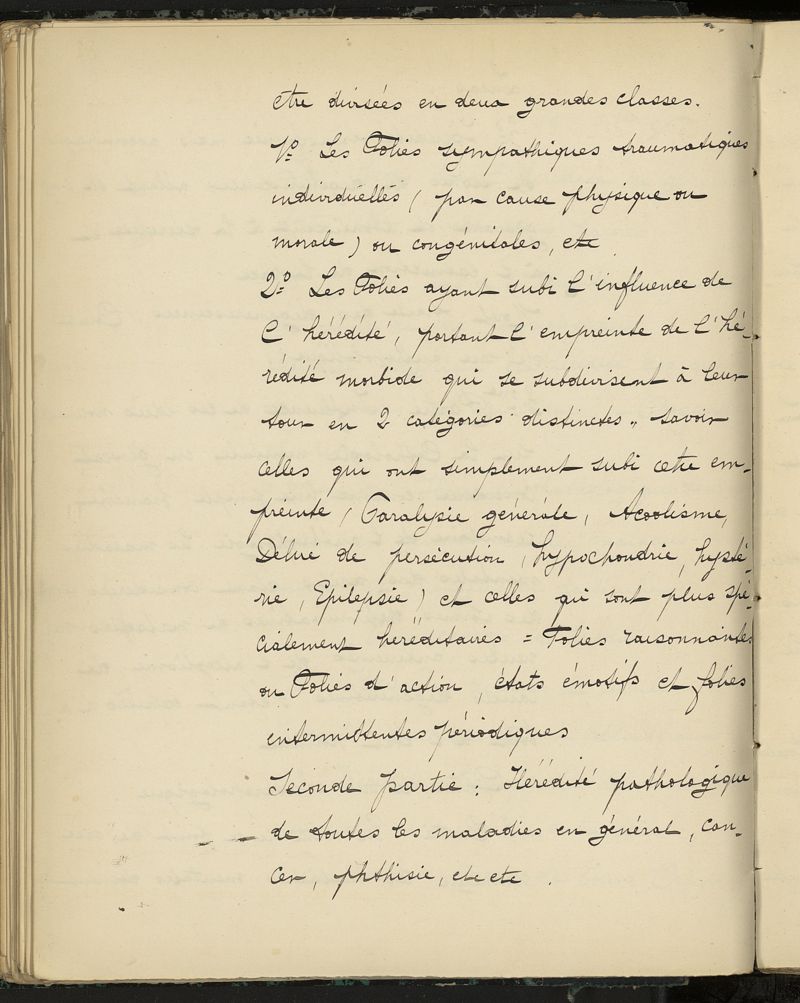 etre divisées en deux grandes classes.
1º Les Folies sympathiques traumatiques
individuelles ( par cause physique ou
morale ) ou congénitales, etc
2º Les Folies ayant subi l'influence de
l'hérédité, portant l'empreinte de l'hé-
rédité morbide qui se subdivisent à leur
tour en 2 catégories distinctes, savoir
celles qui ont simplement subi cette em-
preinte ( Paralysie générale, Acoolisme,
Délire de persécution, hypochondrie, hysté-
rie, Epilepsie ) et celles qui sont plus spé-
cialement heréditaires = Folies raisonnantes
ou Folies d'action, états émotifs et folies
intermittentes périodiques
Seconde partie : Hérédité pathologique
de toutes les maladies en général, can-
cer, phthisie, etc etc.